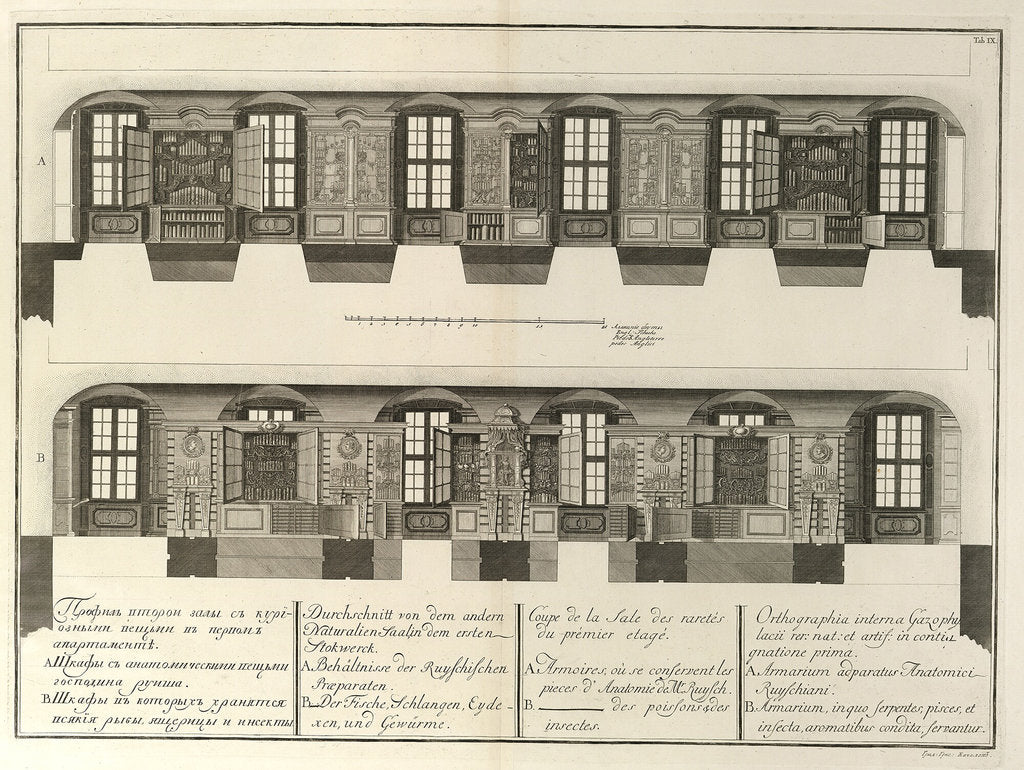 Tab IX.
A
1 2 3 4 5 6 7 8 9 10
Engl. Schuhe
Pieds d'Angleterre
pedes Anglici
B
Профиль второй залы съ курі-
озными вещьми въ первомъ
апартаментѣ.
А Шкафы съ анатомическими вещьми
господина руиша.
В Шкафы въ которыхъ хранятся
всякія рыбы, ящерицы и инсекты
Durchschnitt von dem andern
Naturalien Saal in dem ersten
Stokwerck.
A. Behältnisse der Ruyschischen
Præparaten.
B. Der Fische, Schlangen, Eyde-
xen, und Gewürme.
Coupe de la Sale des raretés
du prémier etage.
A. Armoires, où se conservent les
pieces d'Anatomie de Mr. Ruysch.
B. des poissons & des
insectes.
Orthographia interna Gazophy-
lacii rer: nat: et artif: in contig
gnatione prima.
A. Armarium adparatus Anatomici
Ruyschiani.
B. Armarium, in quo serpentes, pisces, et
insecta, aromatibus condita, servantur.